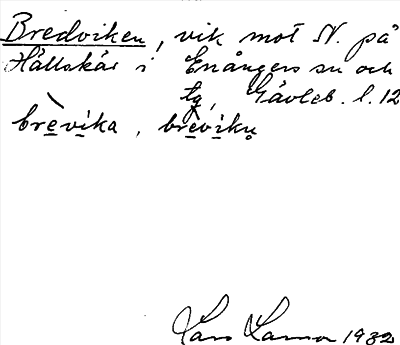 Bredviken, vik mot N. på
Hällskär i Enångers sn och
tg, Gävleb. l. 12
brèvika, brèviku
Lars 1932